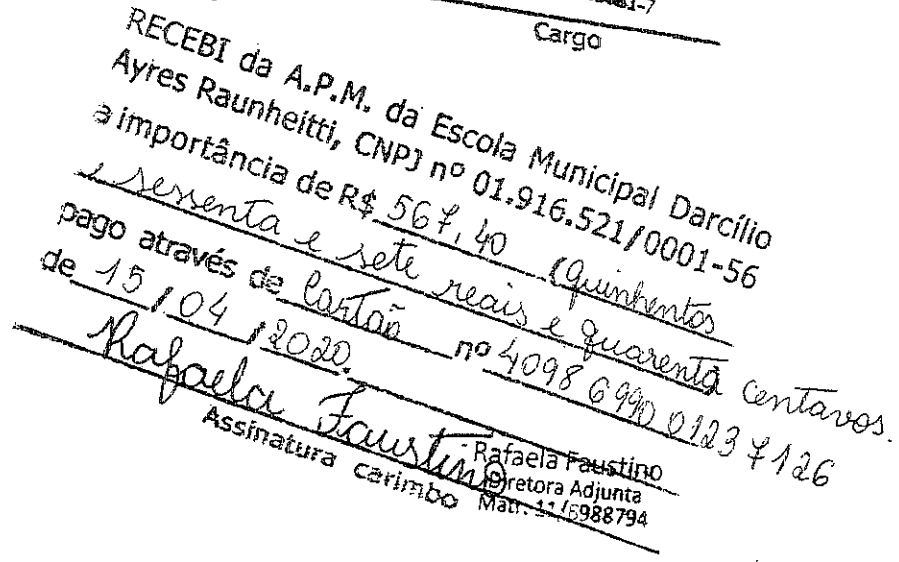 Cargo
RECEBI da A.P.M. da Escola Municipal Darcílio
Ayres Raunheitti, CNPJ nº 01.916.521/0001-56
a importância de R$ 567,40 (Quinhentos
e sessenta e sete reais e quarenta centavos.
pago através de Cartão nº 4098 6990 0123 7126
de 15/04/2020.
Rafaela Faustino
Assinatura carimbo
Rafaela Faustino
Diretora Adjunta
Matr. 11/6988794